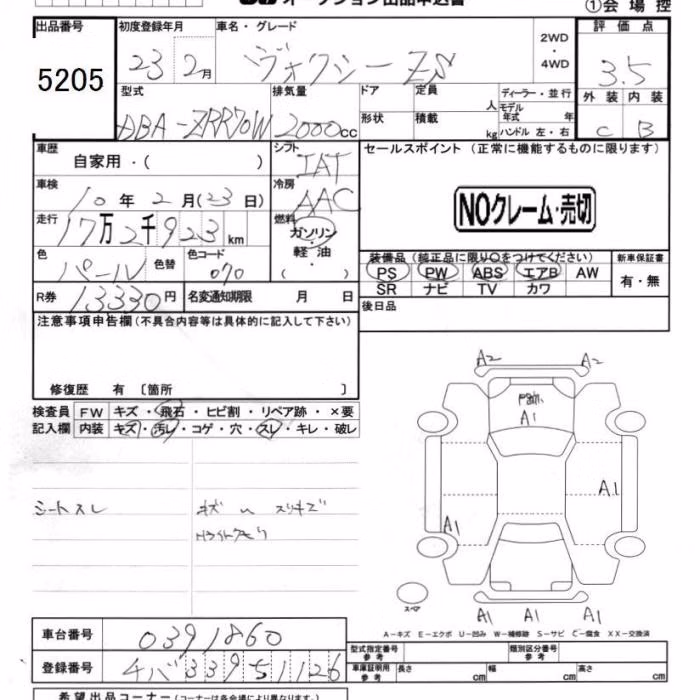 オークション出品申込書
①会場控
出品番号 初度登録年月 車名・グレード 評価点
5205 23 2月 ヴォクシー ZS 2WD・4WD 3.5
型式 排気量 ドア 定員 人 ディーラー・並行 外装 内装
DBA-ZRR70W 2000cc 形状 積載 kg モデル年式 年 ハンドル 左・右 C B
車歴 自家用・( ) シフト IAT セールスポイント(正常に機能するものに限ります)
車検 10年2月(23日) 冷房 AAC
NOクレーム・売切
走行 17万2千923km 燃料 ガソリン・軽油・( )
色 パール 色替 色コード 070
装備品(純正品に限り○をつけてください) 新車保証書
PS PW ABS エアB AW 有・無
SR ナビ TV カワ
R券 13330円 名変通知期限 月 日
後日品
注意事項申告欄(不具合内容等は具体的に記入して下さい)
修復歴 有 〔箇所 〕
検査員記入欄 FW キズ・飛石・ヒビ割・リペア跡・×要
内装 キズ・汚レ・コゲ・穴・スレ・キレ・破レ
シートスレ キズ スリキズ
A2 A2
A1
A1
A1
スペア
A1 A1 A1
A-キズ E-エクボ U-凹み W-補修跡 S-サビ C-腐食 XX-交換済
車台番号 0391860
登録番号 339 1126
型式指定番号参考 類別区分番号参考
車庫証明用参考 長さ cm 幅 cm 高さ cm
希望出品コーナー(コーナーは各会場により異なります。)